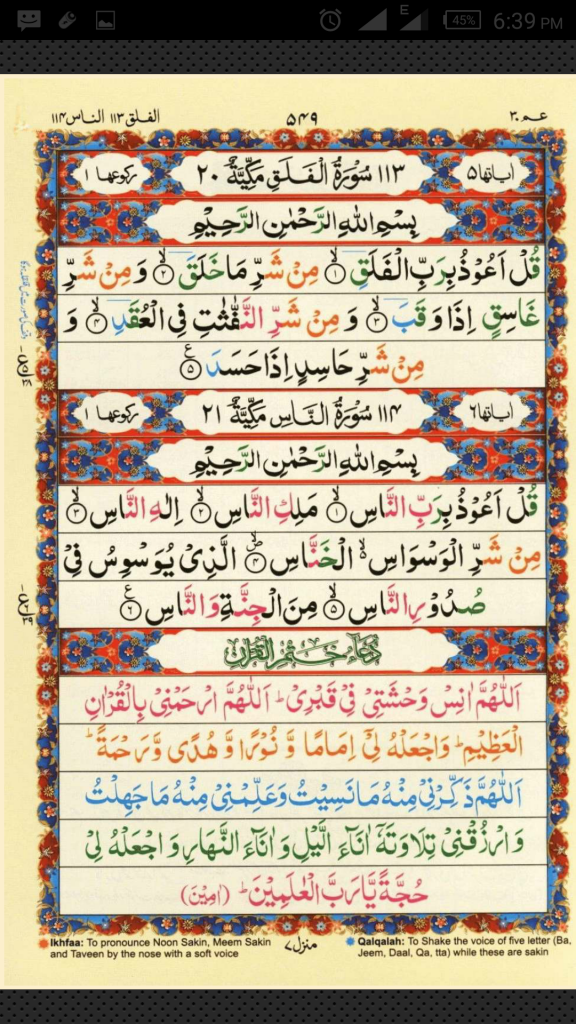 E
45%
6:39 PM
عـم ٣٠
۵۴۹
الفلق ١١٣ الناس ١١۴
اٰیاتها ۵
١١٣ سُوْرَةُ الْفَلَقِ مَكِّيَّةٌ ٢٠
ركوعها ١
بِسْمِ اللهِ الرَّحْمٰنِ الرَّحِيْمِ
قُلْ اَعُوْذُ بِرَبِّ الْفَلَقِ ۙ﴿١﴾ مِنْ شَرِّ مَا خَلَقَ ۙ﴿٢﴾ وَ مِنْ شَرِّ
غَاسِقٍ اِذَا وَقَبَ ۙ﴿٣﴾ وَ مِنْ شَرِّ النَّفّٰثٰتِ فِى الْعُقَدِ ۙ﴿۴﴾ وَ
مِنْ شَرِّ حَاسِدٍ اِذَا حَسَدَ ﴿۵﴾ ع
اٰیاتها ٦
١١۴ سُوْرَةُ النَّاسِ مَكِّيَّةٌ ٢١
ركوعها ١
بِسْمِ اللهِ الرَّحْمٰنِ الرَّحِيْمِ
قُلْ اَعُوْذُ بِرَبِّ النَّاسِ ۙ﴿١﴾ مَلِكِ النَّاسِ ۙ﴿٢﴾ اِلٰهِ النَّاسِ ۙ﴿٣﴾
مِنْ شَرِّ الْوَسْوَاسِ ۙ الْخَنَّاسِ ۪ۙ﴿۴﴾ الَّذِىْ يُوَسْوِسُ فِىْ
صُدُوْرِ النَّاسِ ۙ﴿۵﴾ مِنَ الْجِنَّةِ وَ النَّاسِ ﴿٦﴾ ع
دُعَاءُ خَتْمِ الْقُرْاٰن
اَللّٰهُمَّ اٰنِسْ وَحْشَتِىْ فِىْ قَبْرِىْ ؕ اَللّٰهُمَّ ارْحَمْنِىْ بِالْقُرْاٰنِ
الْعَظِيْمِ ؕ وَاجْعَلْهُ لِىْ اِمَامًا وَّ نُوْرًا وَّ هُدًى وَّ رَحْمَةً ؕ
اَللّٰهُمَّ ذَكِّرْنِىْ مِنْهُ مَا نَسِيْتُ وَعَلِّمْنِىْ مِنْهُ مَا جَهِلْتُ
وَارْزُقْنِىْ تِلَاوَتَهٗٓ اٰنَآءَ الَّيْلِ وَ اٰنَآءَ النَّهَارِ وَ اجْعَلْهُ لِىْ
حُجَّةً يَّا رَبَّ الْعٰلَمِيْنَ ؕ (اٰمِيْنَ)
Ikhfaa: To pronounce Noon Sakin, Meem Sakin
and Taveen by the nose with a soft voice
منزل ٧
Qalqalah: To Shake the voice of five letter (Ba,
Jeem, Daal, Qa, tta) while these are sakin